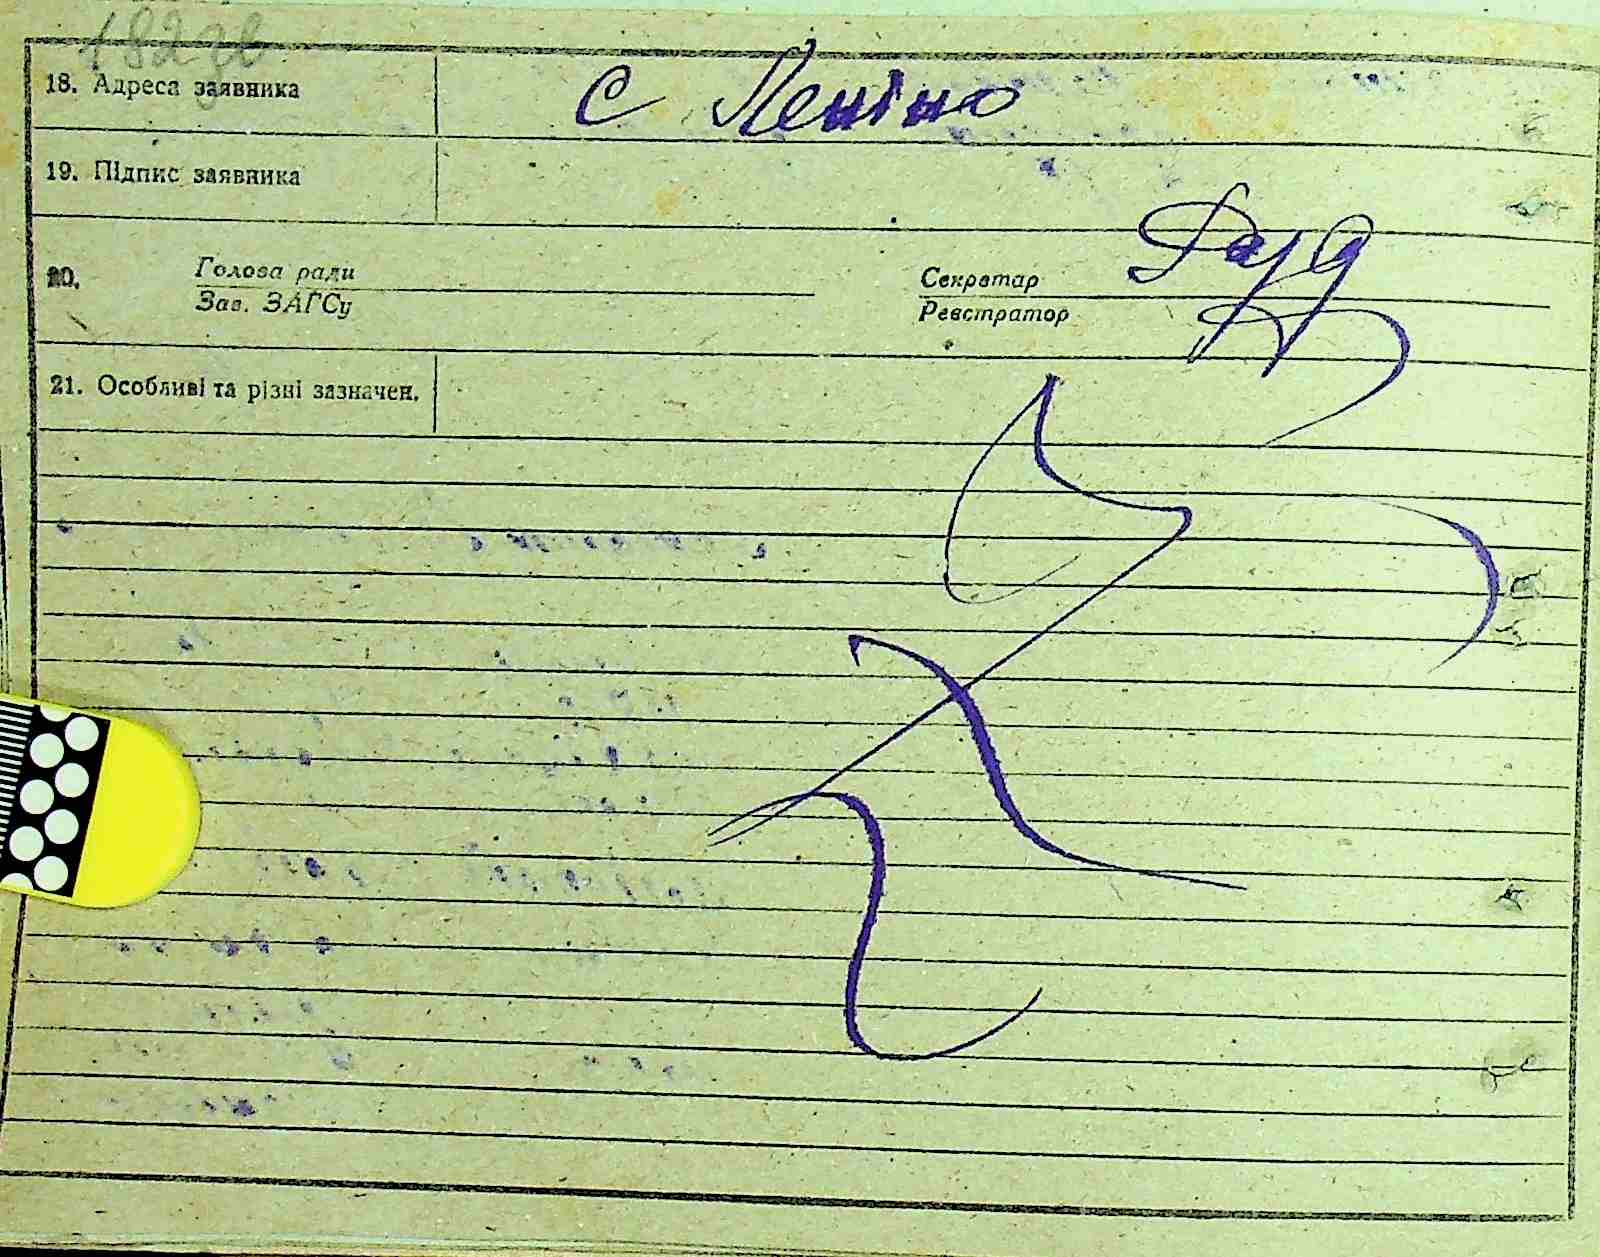 182 зв
18. Адреса заявника с Леніно
19. Підпис заявника
20. Голова ради Секретар
Зав. ЗАГСу Реєстратор
21. Особливі та різні зазначен.